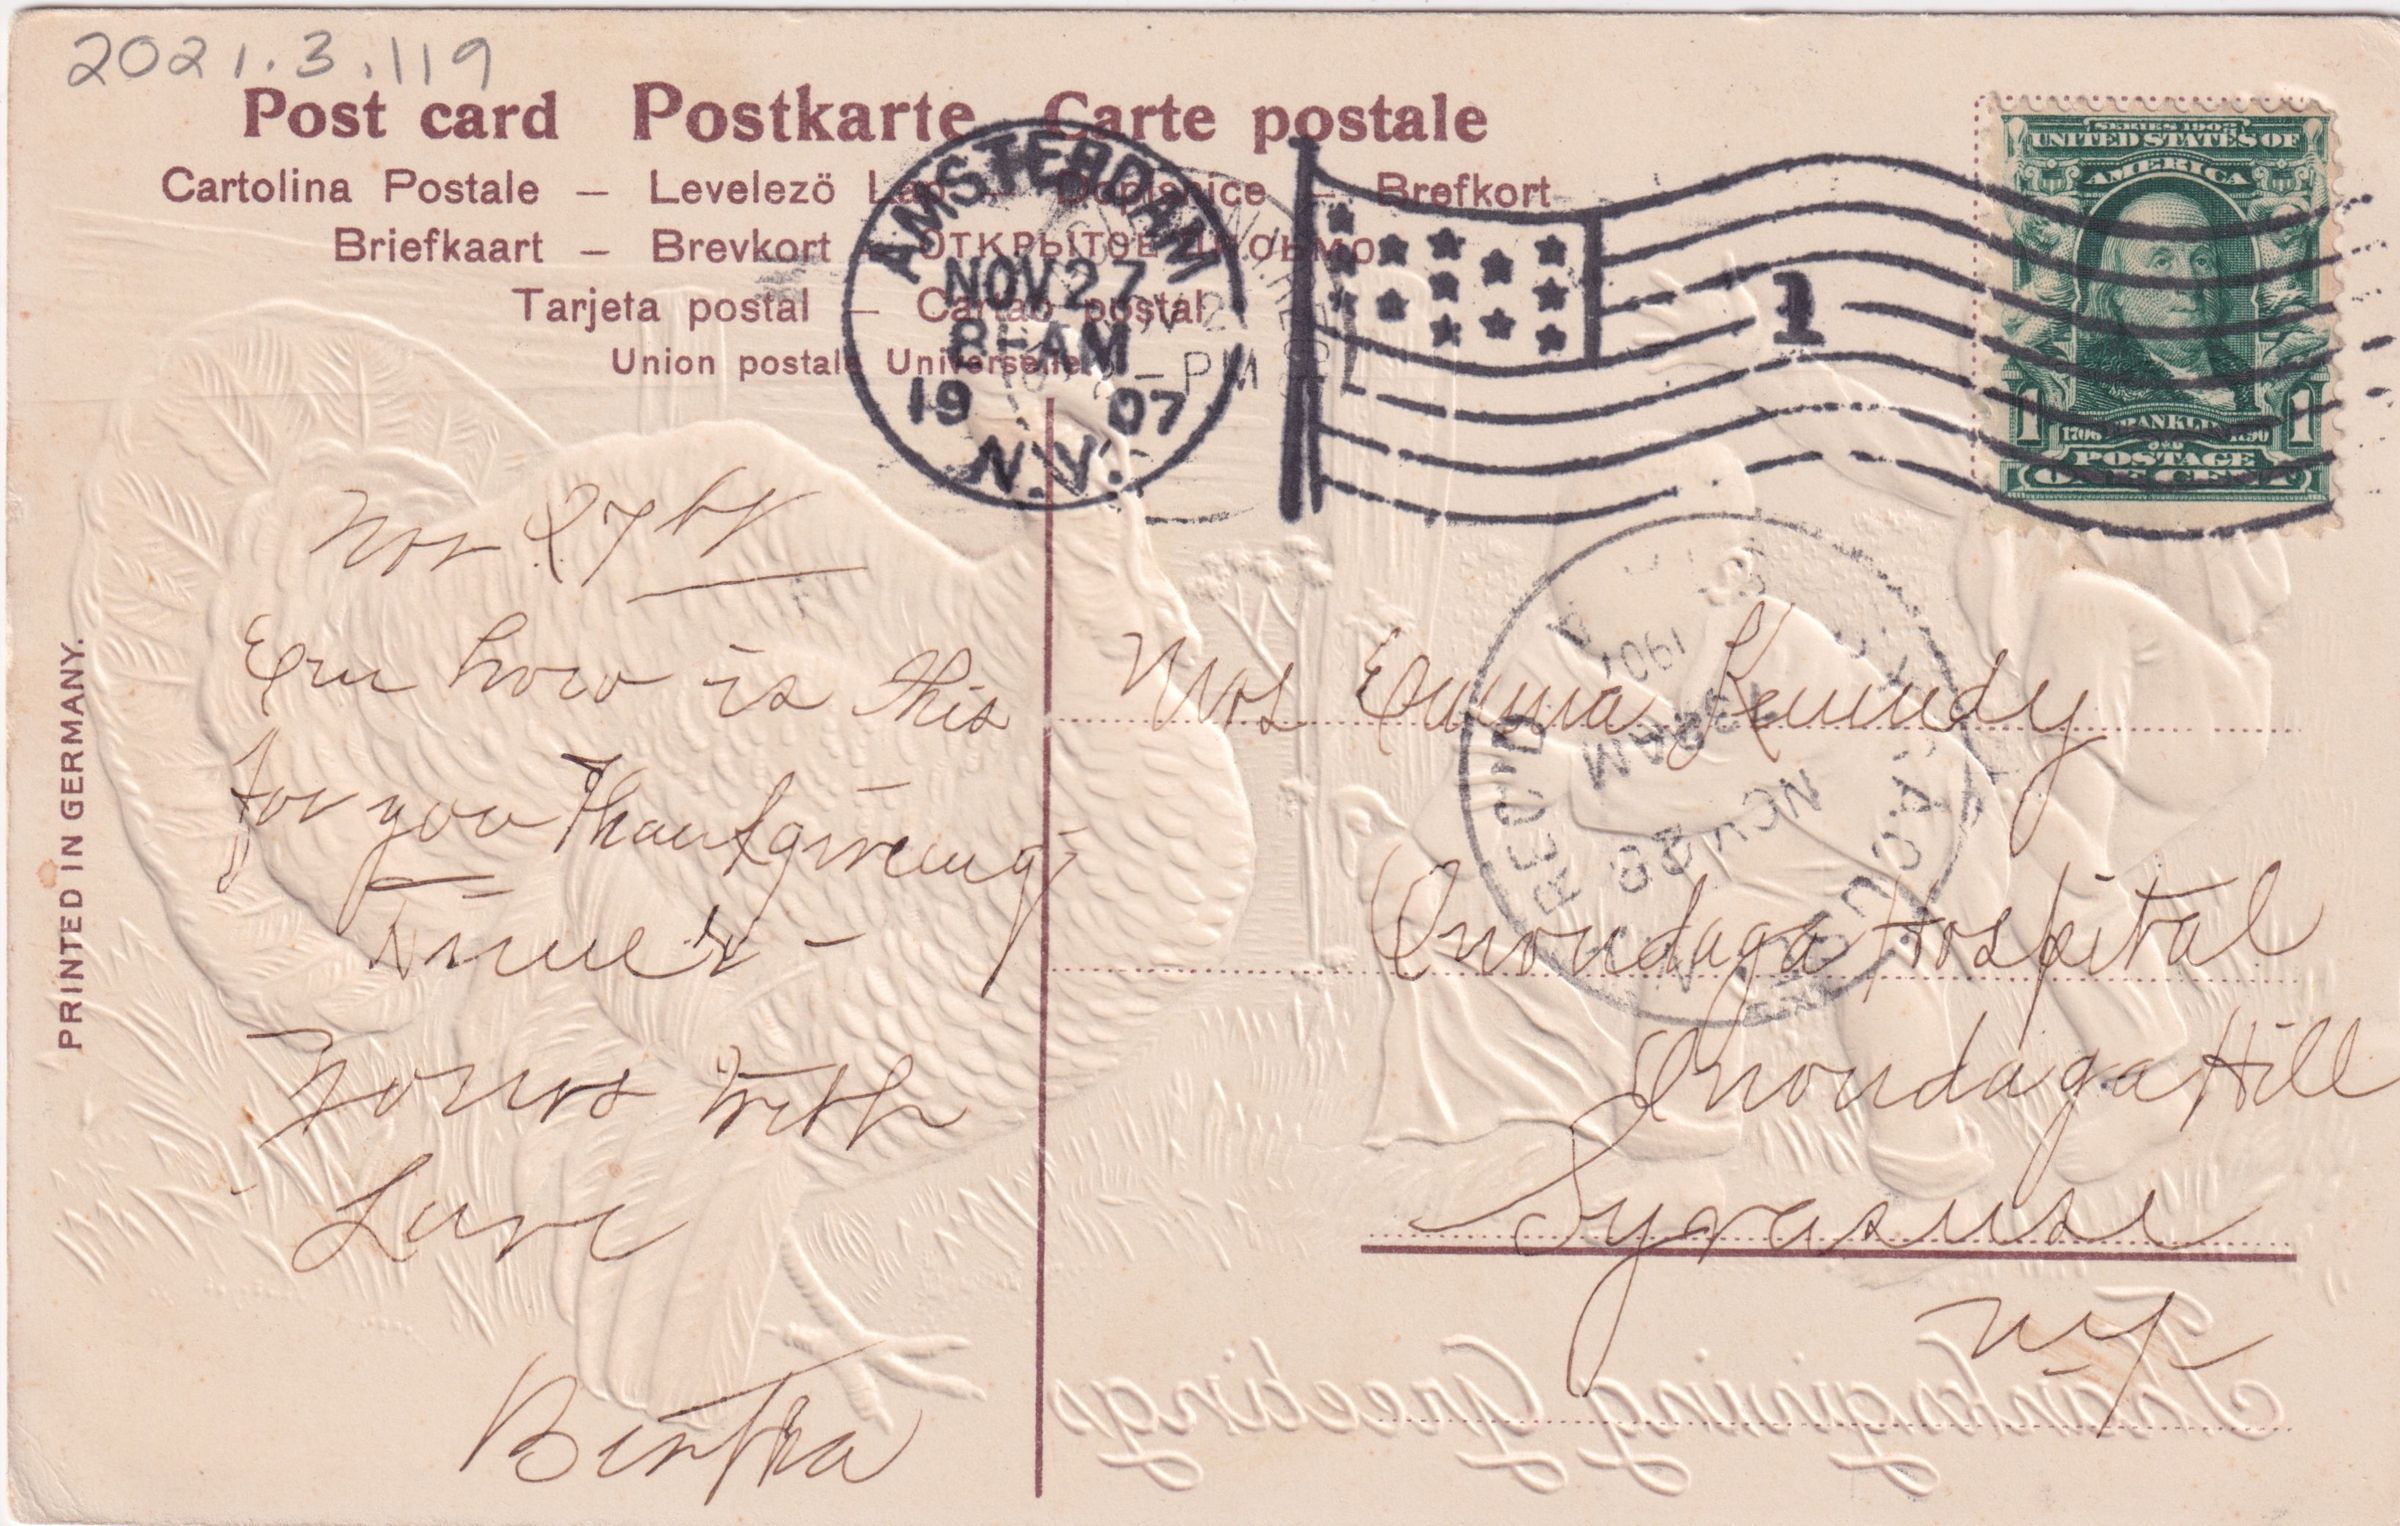 2021.3.119
Post card Postkarte Carte postale
Cartolina Postale – Levelező Lap – Dopisnice – Brefkort
Briefkaart – Brevkort – Открытое письмо
Tarjeta postal – Cartao postal
Union postale Universelle
AMSTERDAM
NOV 27
8-AM
19 07
N.Y.
1
SERIES 1902
UNITED STATES OF
AMERICA
1 FRANKLIN 1
1706 1790
POSTAGE
ONE CENT
PRINTED IN GERMANY.
Nov 27th
Em how is this
for you Thanksgiving
Dinner –
Yours with
Love
Bertha
REC'D
SYRACUSE
NOV 28
AM
1907
Mrs Emma Kennedy
Onondaga Hospital
Onondaga Hill
Syracuse
N.Y.
Thanksgiving Greetings